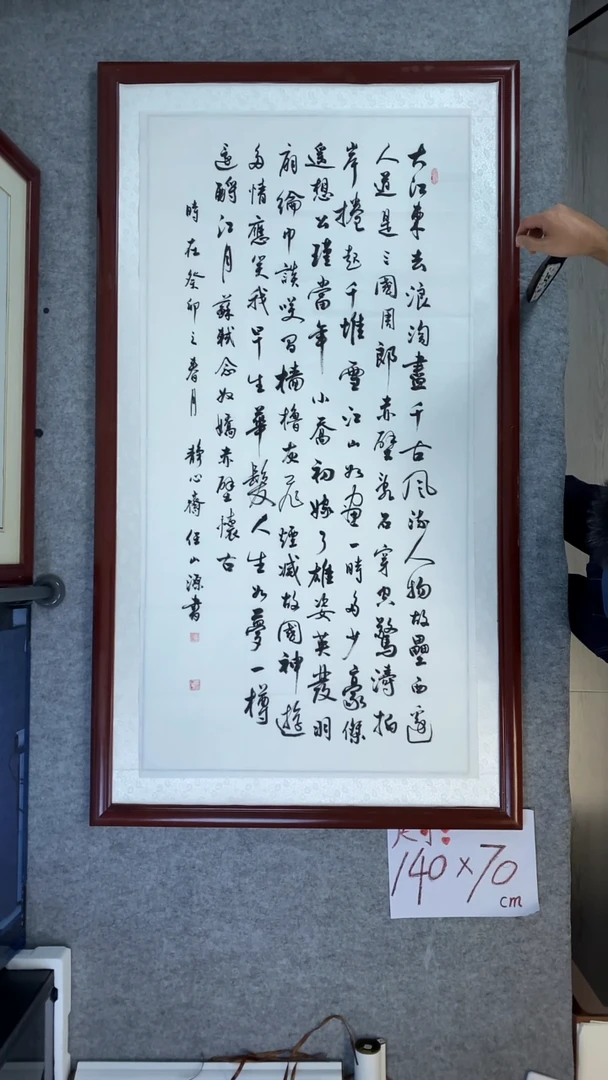 大江東去浪淘盡千古風流人物故壘西邊
人道是三國周郎赤壁亂石穿空驚濤拍
岸捲起千堆雪江山如畫一時多少豪傑
遙想公瑾當年小喬初嫁了雄姿英發羽
扇綸巾談笑間檣櫓灰飛煙滅故國神遊
多情應笑我早生華髮人生如夢一樽
還酹江月蘇軾念奴嬌赤壁懷古
時在癸卯之春月 靜心齋任山源書
140×70
cm